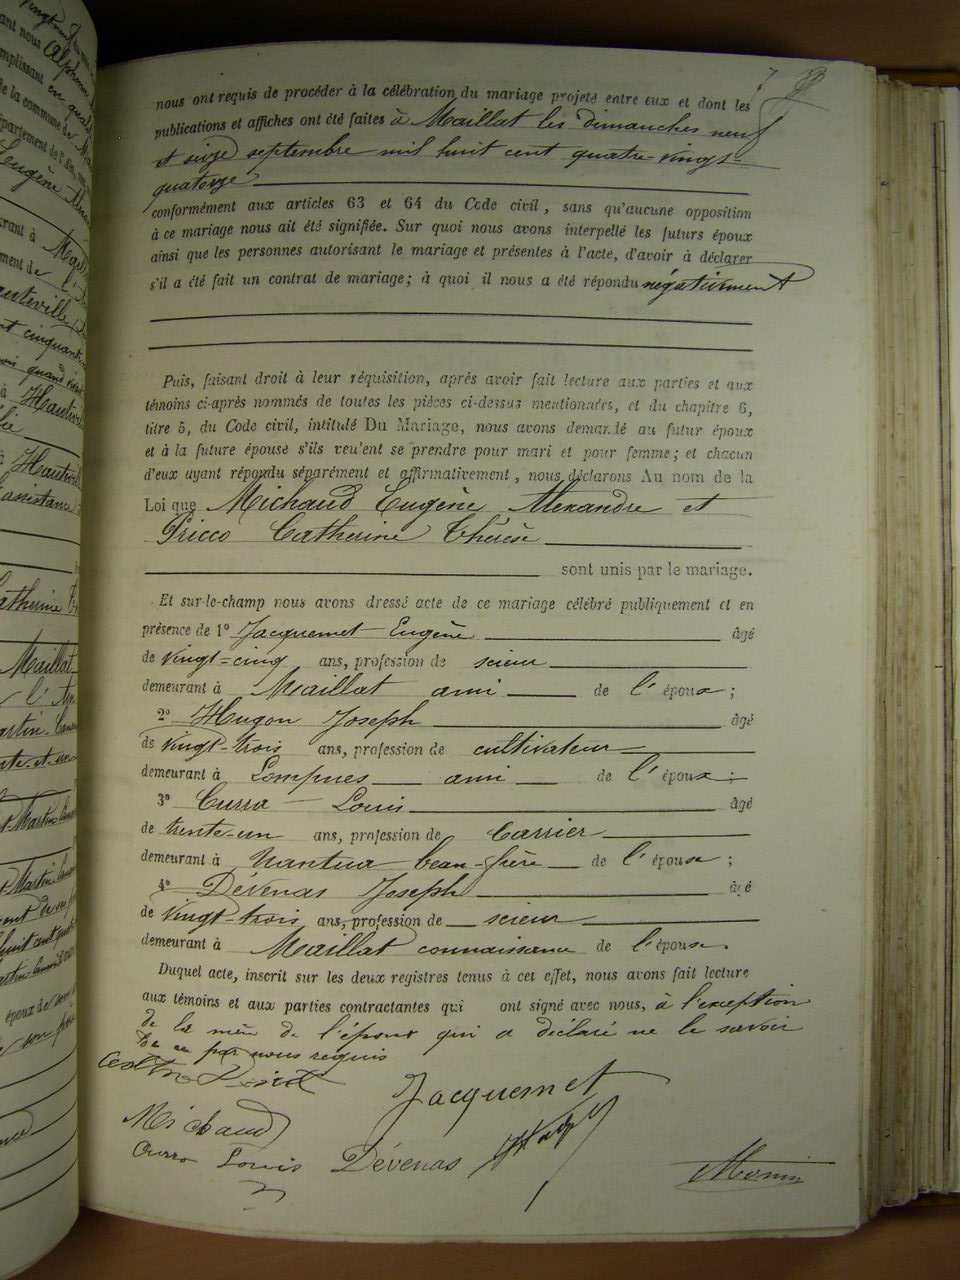 nous ont requis de procéder à la célébration du mariage projeté entre eux et dont les
publications et affiches ont été faites à Maillat les dimanches neuf
et seize septembre mil huit cent quatre-vingt-
quatorze
conformément aux articles 63 et 64 du Code civil, sans qu'aucune opposition
à ce mariage nous ait été signifiée. Sur quoi nous avons interpellé les futurs époux
ainsi que les personnes autorisant le mariage et présentes à l'acte, d'avoir à déclarer
s'il a été fait un contrat de mariage; à quoi il nous a été répondu négativement
Puis, faisant droit à leur réquisition, après avoir fait lecture aux parties et aux
témoins ci-après nommés de toutes les pièces ci-dessus mentionnées, et du chapitre 6,
titre 5, du Code civil, intitulé Du Mariage, nous avons demandé au futur époux
et à la future épouse s'ils veulent se prendre pour mari et pour femme; et chacun
d'eux ayant répondu séparément et affirmativement, nous déclarons Au nom de la
Loi que Michaud Eugène Alexandre et
Pricco Catherine Thérèse
sont unis par le mariage.
Et sur-le-champ nous avons dressé acte de ce mariage célébré publiquement et en
présence de 1º Jacquemet Eugène âgé
de vingt-cinq ans, profession de scieur
demeurant à Maillat ami de l'époux;
2º Hugon Joseph âgé
de vingt-trois ans, profession de cultivateur
demeurant à Lompnes ami de l'époux;
3º Curra Louis âgé
de trente-un ans, profession de Carrier
demeurant à Nantua beau-frère de l'épouse;
4º Dévenas Joseph âgé
de vingt-trois ans, profession de scieur
demeurant à Maillat connaissance de l'épouse.
Duquel acte, inscrit sur les deux registres tenus à cet effet, nous avons fait lecture
aux témoins et aux parties contractantes qui ont signé avec nous, à l'exception
de la mère de l'époux qui a déclaré ne le savoir
de ce par nous requis
Jacquemet
Michaud
Curro Louis Dévenas
Monin